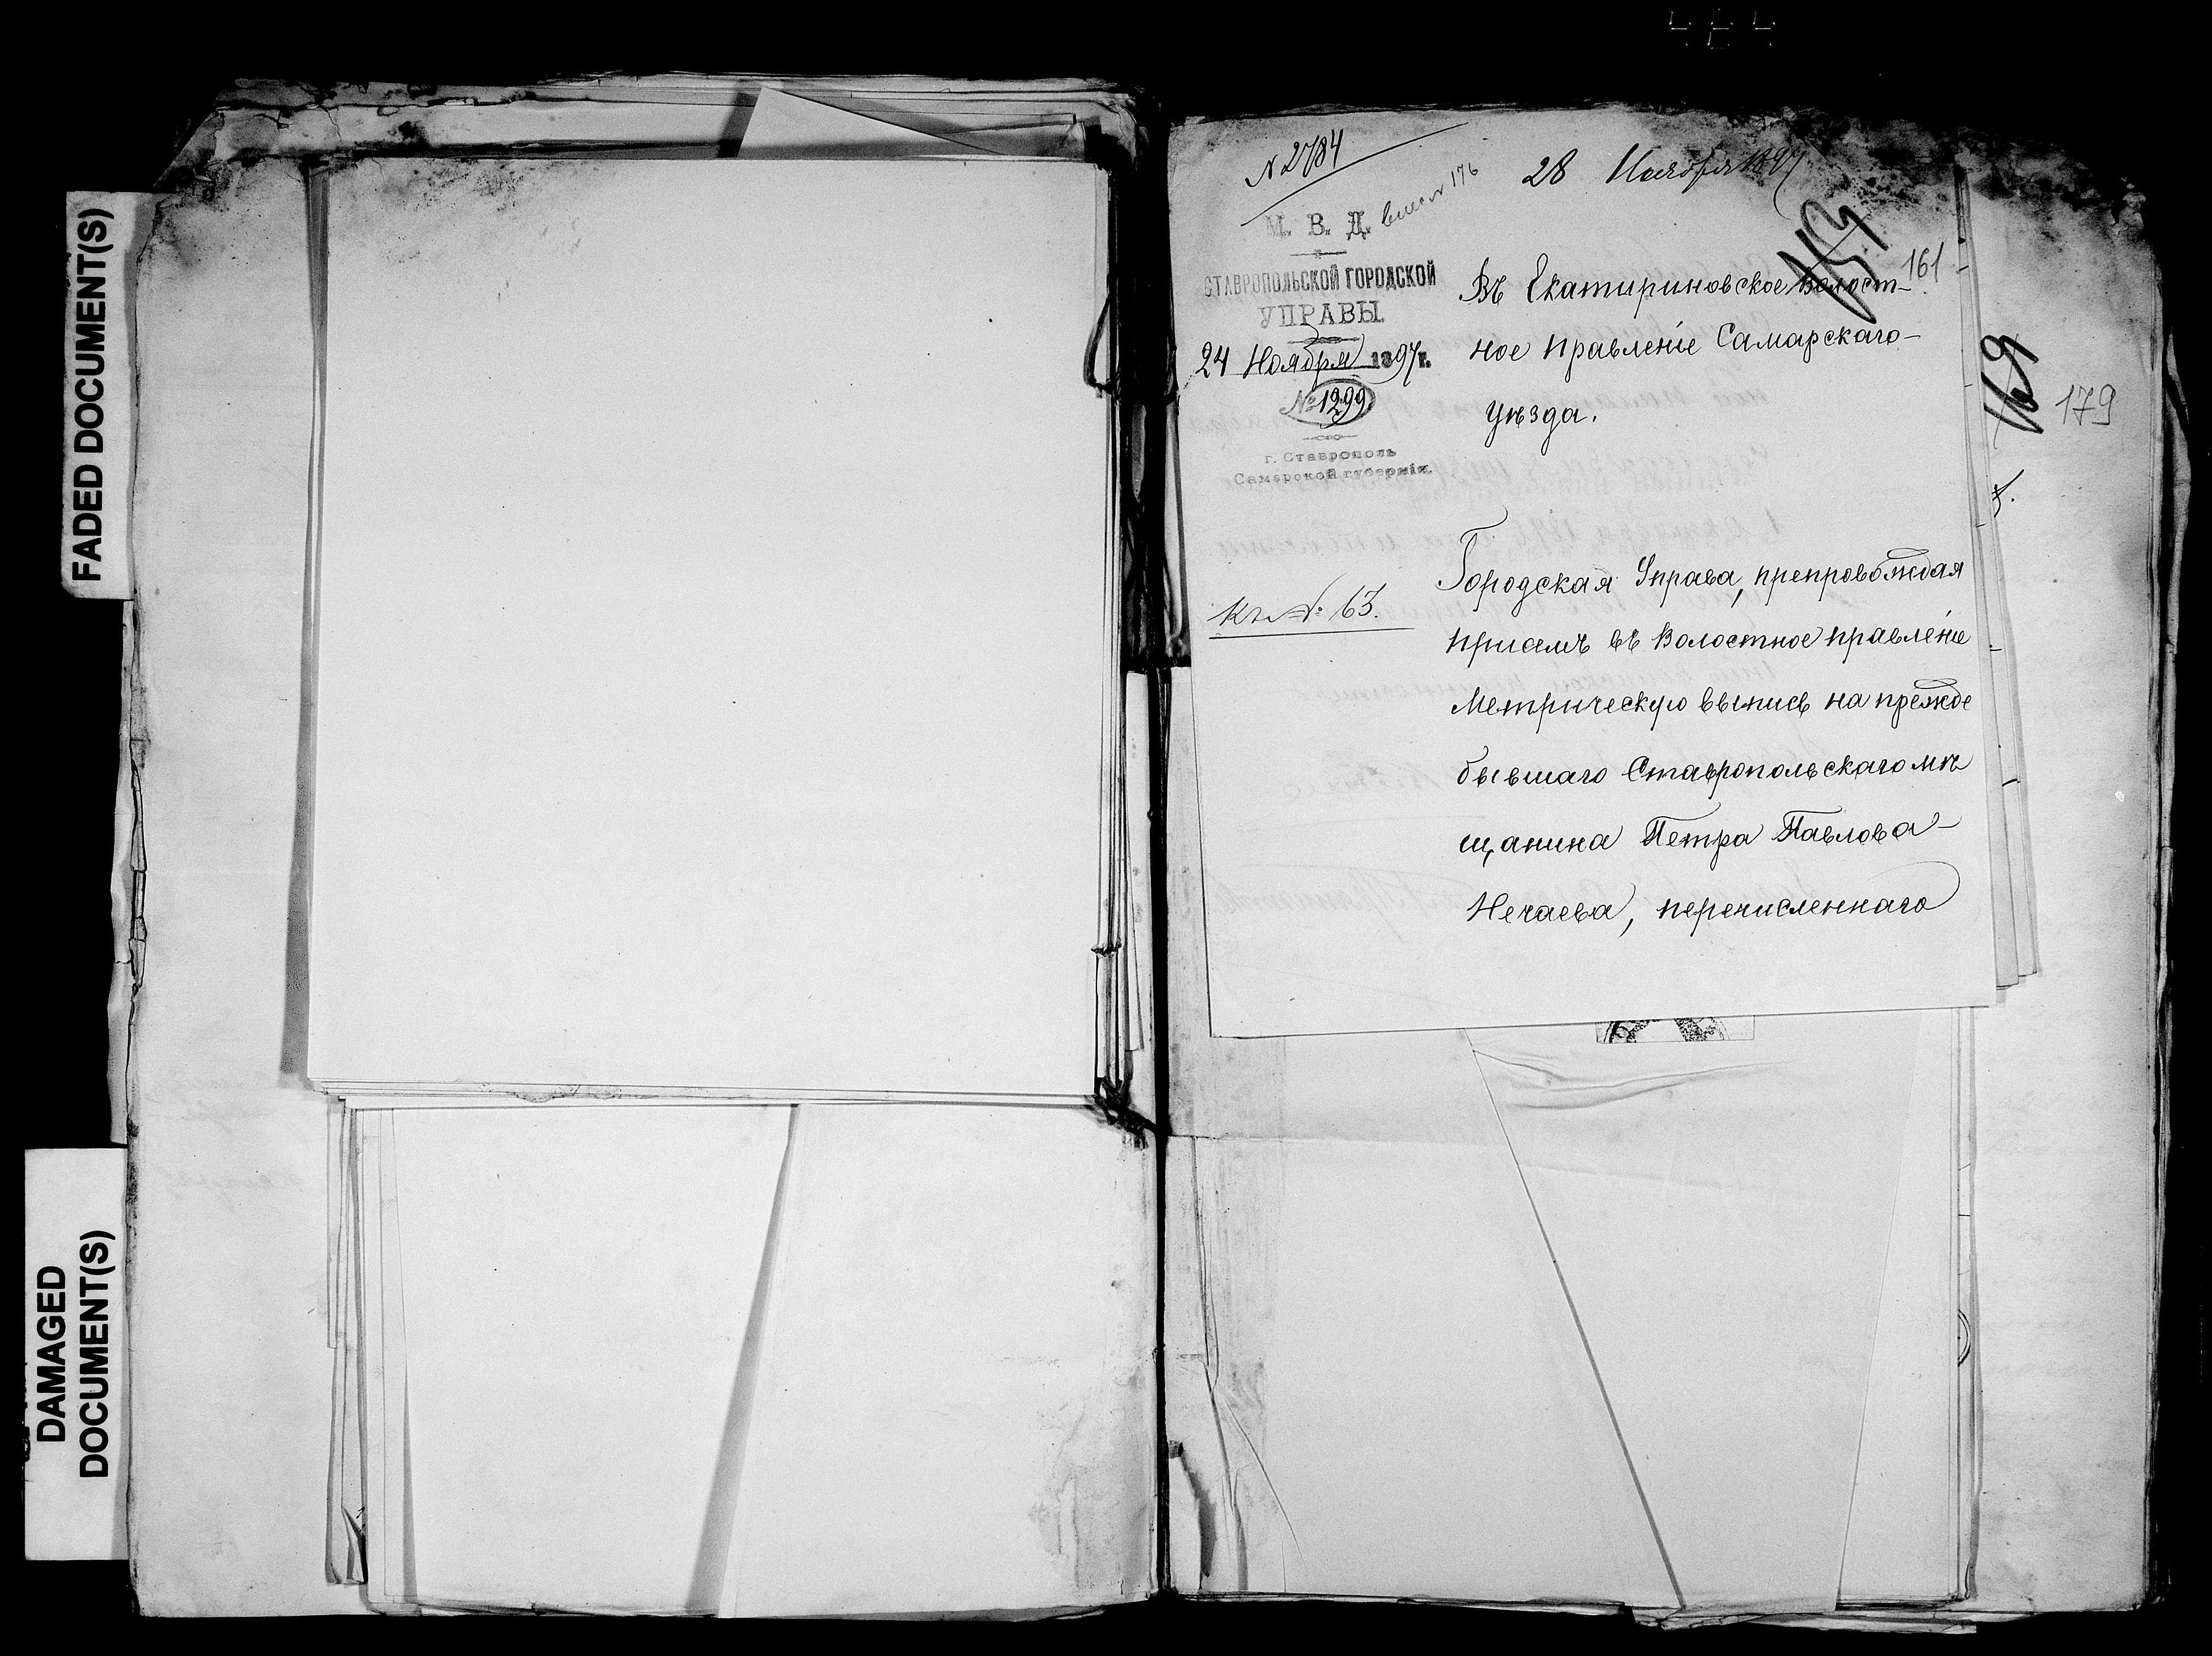 FADED DOCUMENT(S)
DAMAGED
DOCUMENT(S)
N 2784
28 Ноября 1897
176
М. В. Д.
СТАВРОПОЛЬСКОЙ ГОРОДСКОЙ
УПРАВЫ
24 Ноября 1897 г.
№ 1299
г. Ставрополь
Самарской губерніи.
161
Въ Екатириновское Волост-
ное Правленіе Самарскаго
Уѣзда.
169
179
Къ № 63.
Городская Управа, препровождая
присемъ въ Волостное правленіе
Метрическую выпись на прежде
бывшаго Ставропольскаго мѣ
щанина Петра Павлова
Нечаева, перечисленнаго